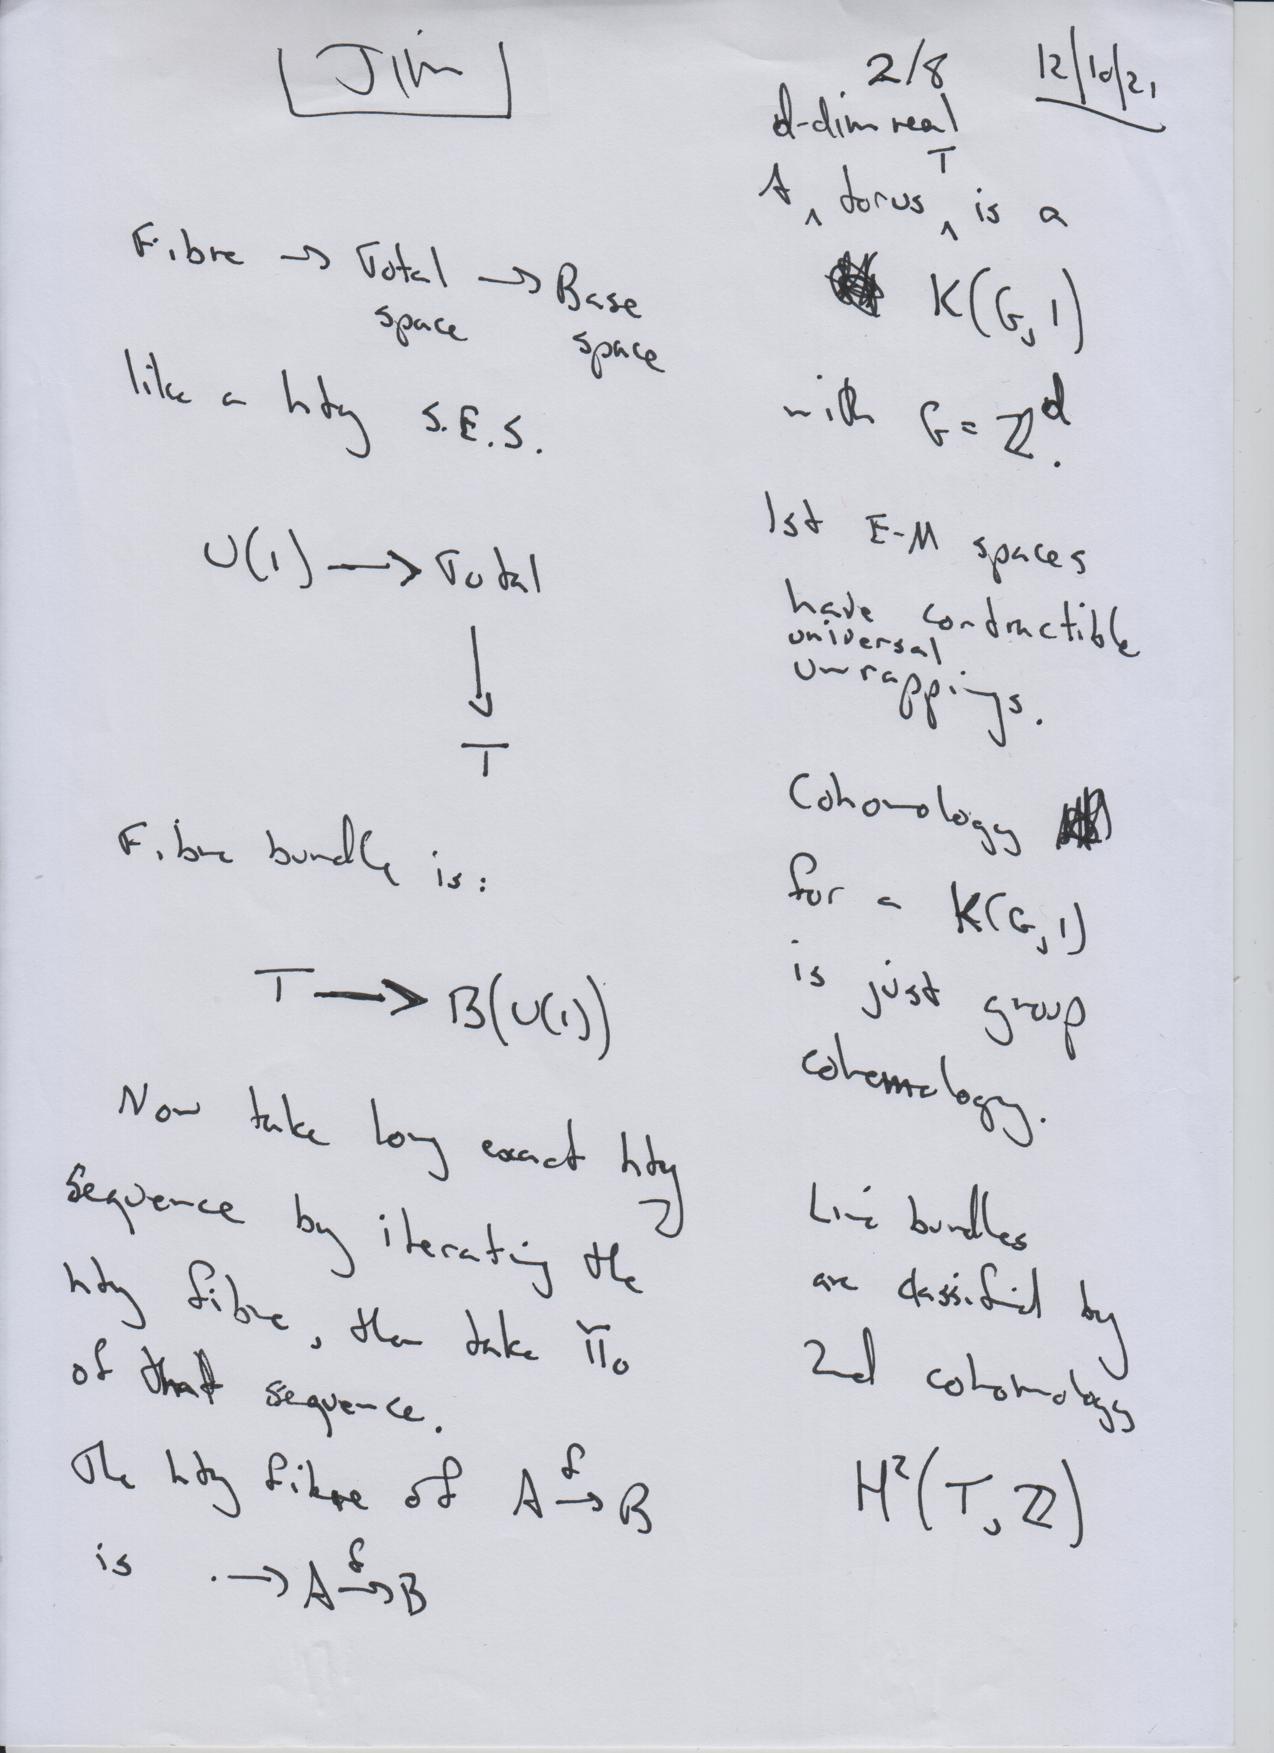 Jim
2/8 12/10/21
Fibre → Total → Base
space space
like a hty S.E.S.
U(1) → Total
↓
T
Fibre bundle is:
T → B(U(1))
Now take long exact hty
sequence by iterating the
hty fibre, then take π₀
of that sequence.
The hty fibre of A →f B
is · → A →f B
d-dim real
T
A ‸ torus ‸ is a
K(G, 1)
with G = ℤᵈ.
1st E-M spaces
have contractible
universal
unwrappings.
Cohomology
for a K(G, 1)
is just group
cohomology.
Line bundles
are classified by
2nd cohomology
H²(T, ℤ)